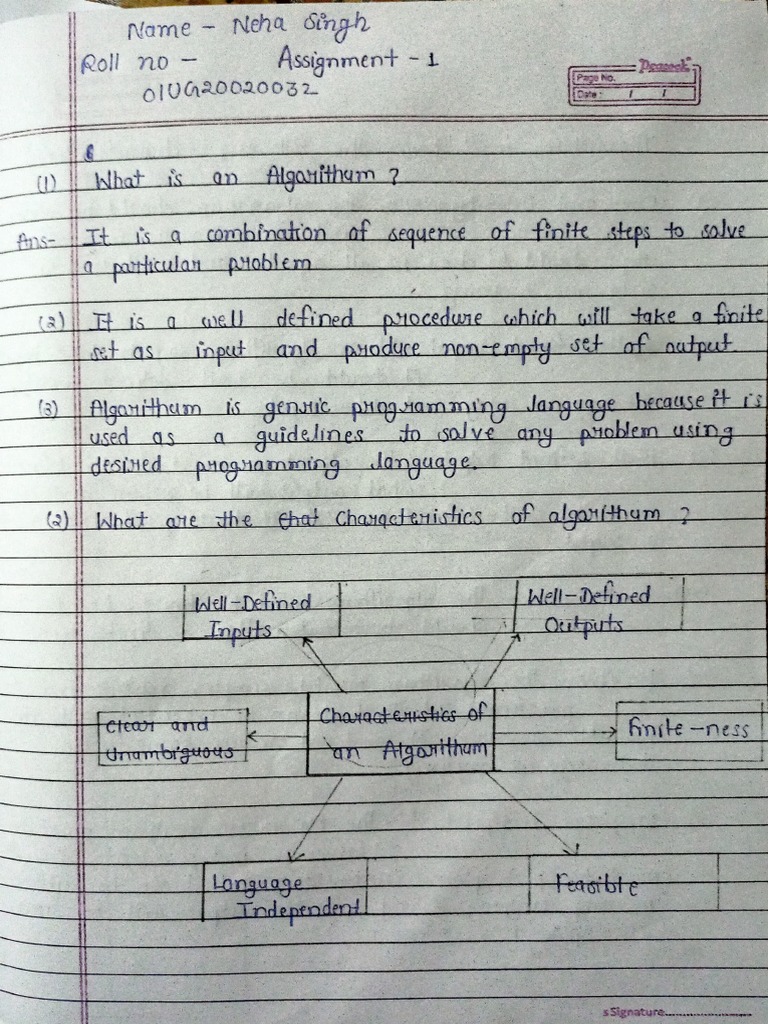 Name - Neha Singh
Roll no - Assignment - 1
01UG20020032
Peacock
Page No.
Date: / /
(1) What is an Algarithum ?
Ans- It is a combination of sequence of finite steps to solve
a particular problem
(2) It is a well defined procedure which will take a finite
set as input and produce non-empty set of output
(3) Algarithum is genric programming language because it is
used as a guidelines to solve any problem using
desired programming language.
(2) What are the chat Characteristics of algarithum ?
Well-Defined
Inputs
Well-Defined
Outputs
Clear and
Unambiguous
Characteristics of
an Algarithum
finite-ness
Language
Independent
Feasible
sSignature